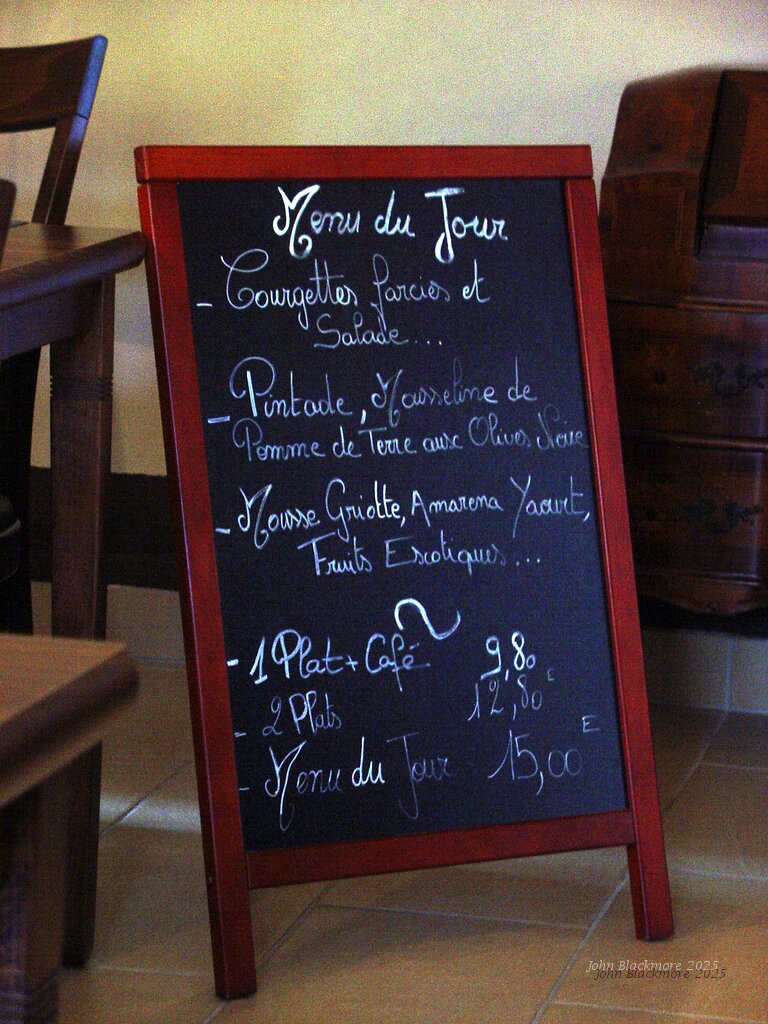 Menu du Jour
- Courgettes farcies et
Salade...
- Pintade, Mousseline de
Pomme de Terre aux Olives Noire
- Mousse Griotte, Amarena Yaourt,
Fruits Exotiques...
- 1 Plat + Café 9,80
- 2 Plats 12,80 €
- Menu du Jour 15,00 E
John Blackmore 2025